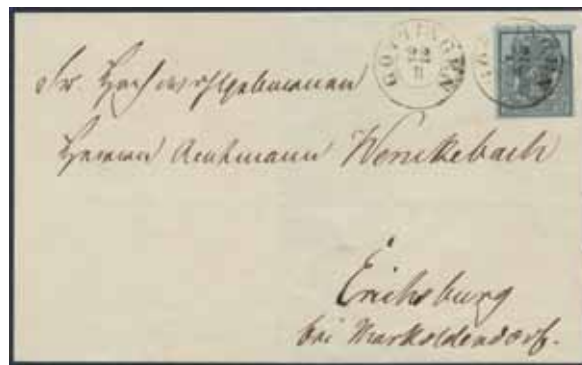 GÖTTINGEN
22
11
Sr Hochwohlgeboren
Herrn Amtmann Wenckebach
Erichsburg
bei Markoldendorf.